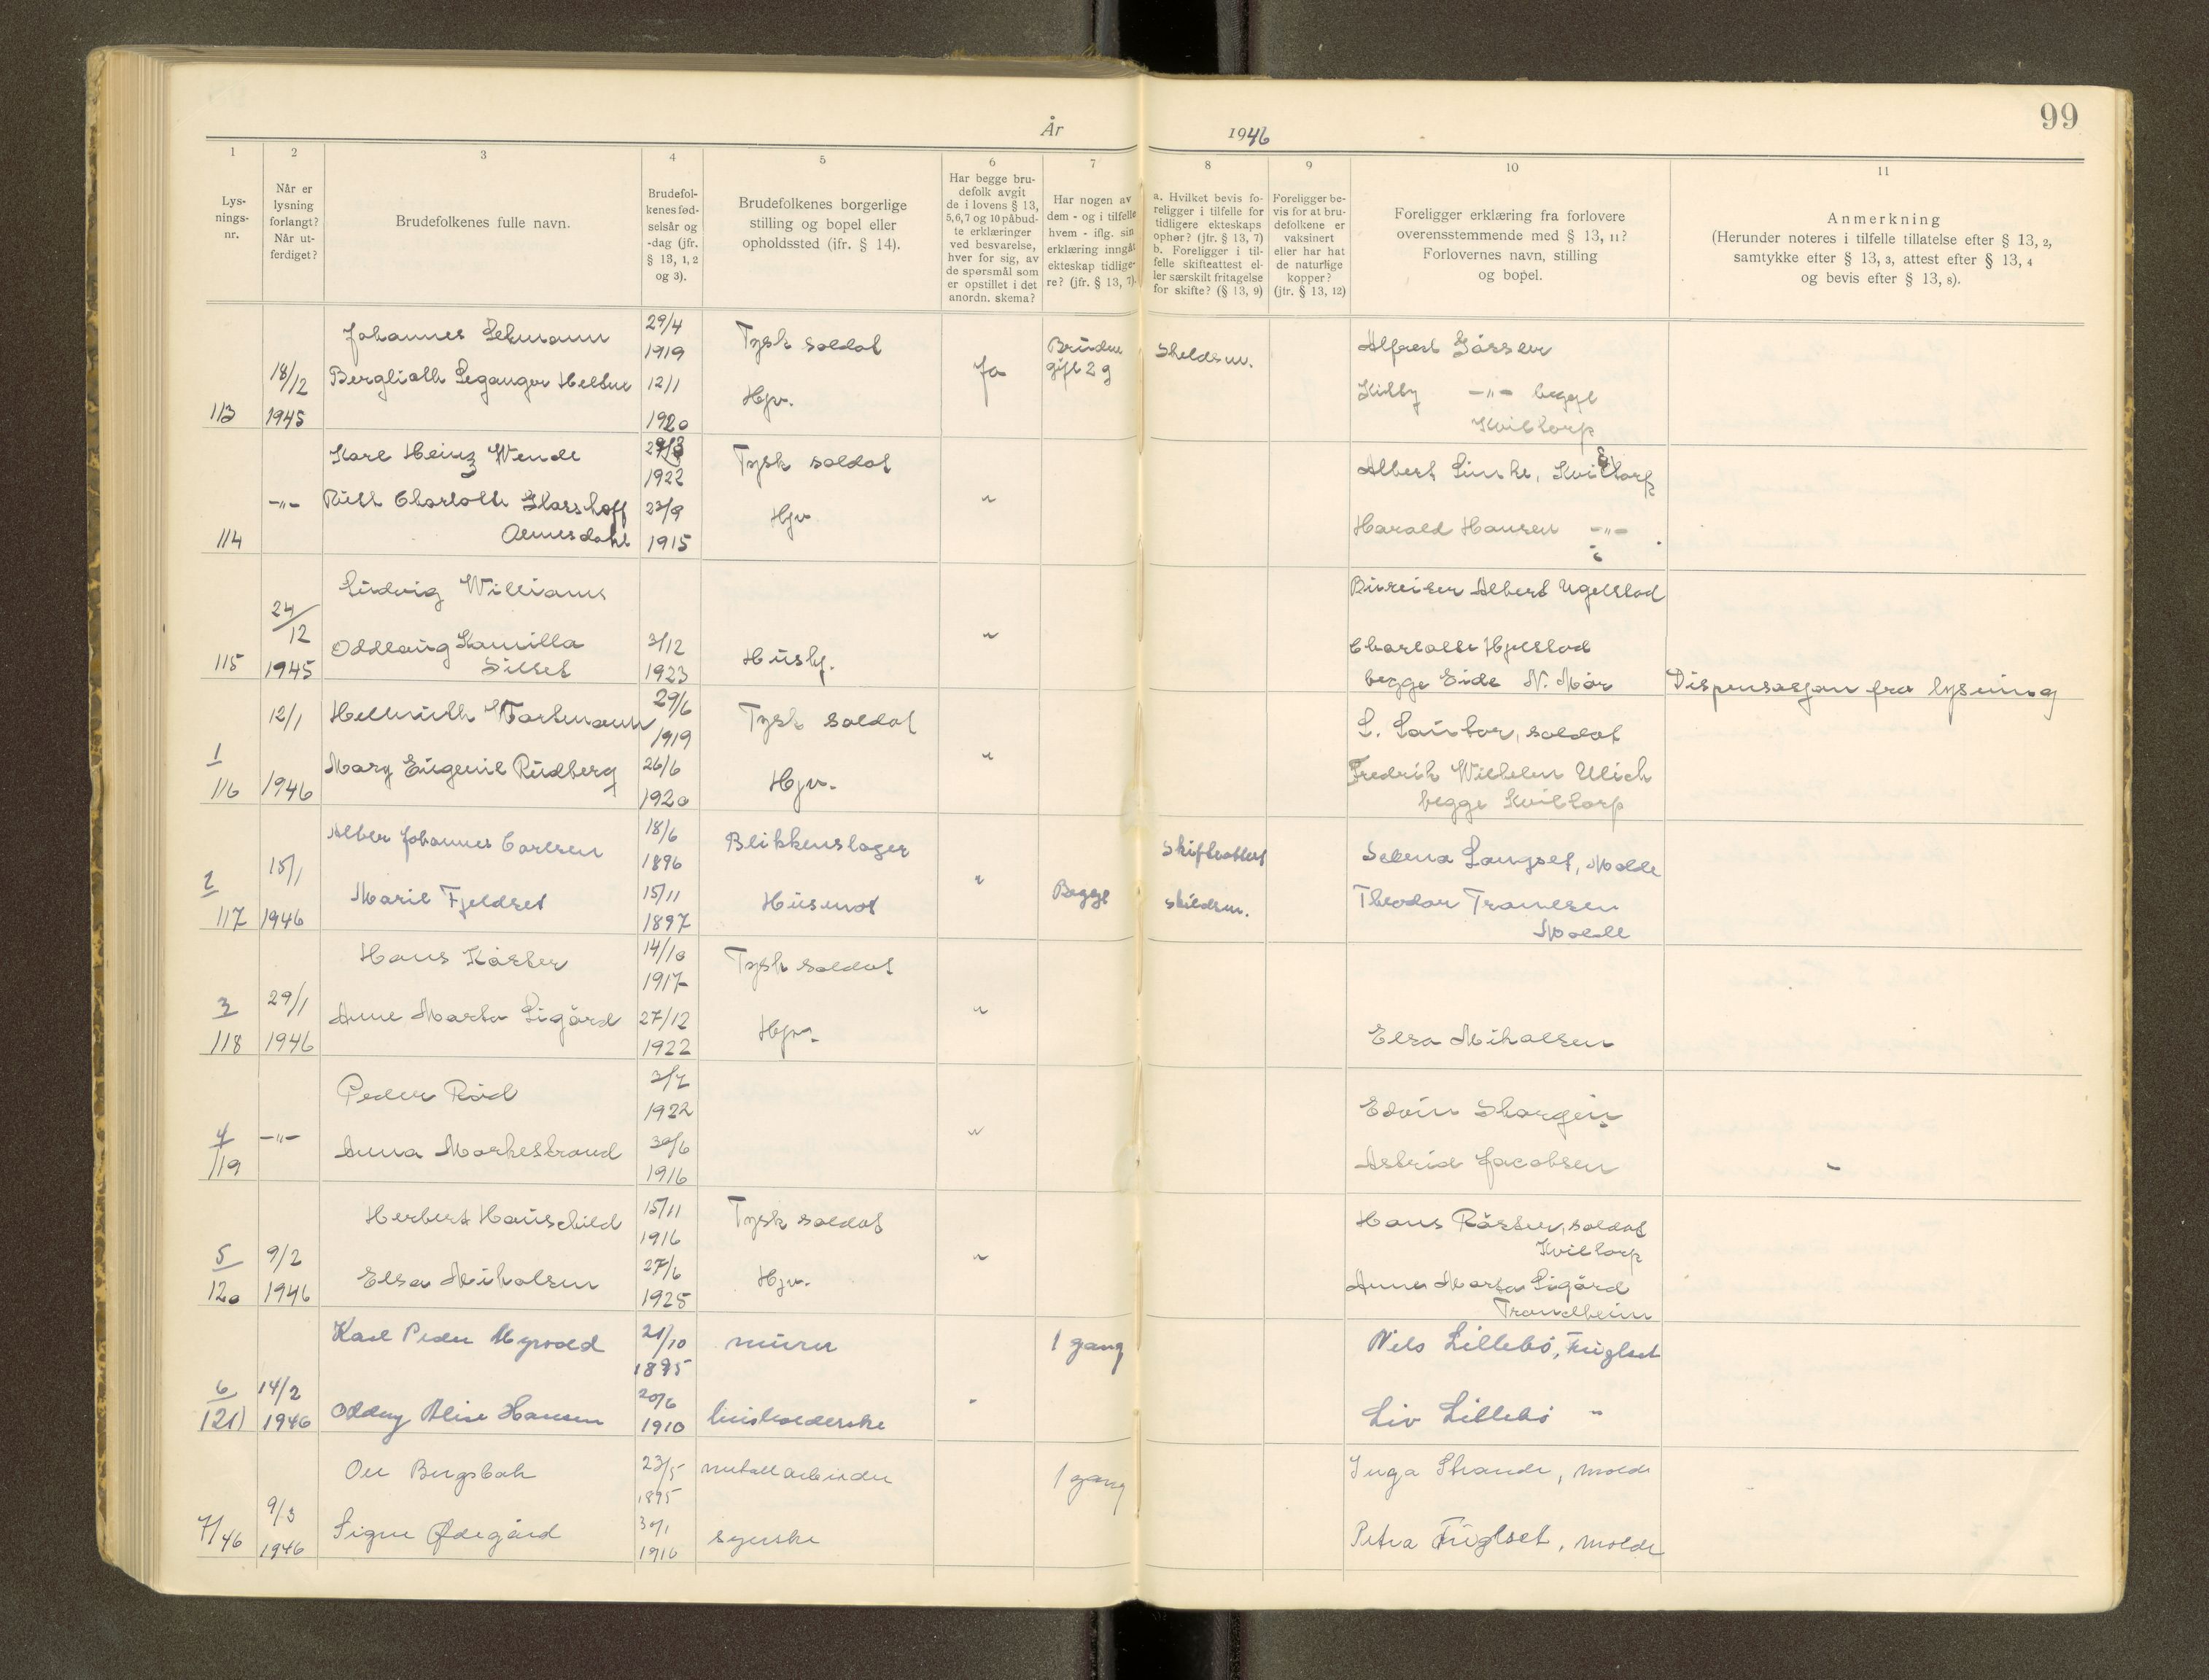 99
År 1946
1
2
3
4
5
6
7
8
9
10
11
Lys-
nings-
nr.
Når er
lysning
forlangt?
Når ut-
ferdiget?
Brudefolkenes fulle navn.
Brudefol-
kenes fød-
selsår og
-dag (jfr.
§ 13, 1, 2
og 3).
Brudefolkenes borgerlige
stilling og bopel eller
opholdssted (ifr. § 14).
Har begge bru-
defolk avgit
de i lovens § 13,
5,6,7 og 10 påbud-
te erklæringer
ved besvarelse,
hver for sig, av
de spørsmål som
er opstillet i det
anordn. skema?
Har nogen av
dem - og i tilfelle
hvem - iflg. sin
erklæring inngåt
ekteskap tidlige-
re? (jfr. § 13, 7).
a. Hvilket bevis fo-
religger i tilfelle for
tidligere ekteskaps
ophør? (jfr. § 13, 7)
b. Foreligger i til-
felle skifteattest el-
ler særskilt fritagelse
for skifte? (§ 13, 9)
Foreligger be-
vis for at bru-
defolkene er
vaksinert
eller har hat
de naturlige
kopper?
(jfr. § 13, 12)
Foreligger erklæring fra forlovere
overensstemmende med § 13, 11?
Forlovernes navn, stilling
og bopel.
Anmerkning
(Herunder noteres i tilfelle tillatelse efter § 13, 2,
samtykke efter § 13, 3, attest efter § 13, 4
og bevis efter § 13, 8).
113
18/12
1945
Johannes Lehmann
29/4
1919
Tysk soldat
Berglioth Leganger
12/1
1920
Hjv.
Ja
Bruden
gift 2 g
Alfred
-"- begge
Kviltorp
114
-"-
Karl Heinz Wende
1922
Tysk soldat
Ruth Charlotte
23/9
1915
Hjv.
"
Albert Linke, Kviltorp
Harald Hansen -"-
115
24/12
1945
Ludvig Williams
Oddlaug Kamilla
Sillset
3/12
1923
Hush.
"
Bureiser Albert Ugelstad
Charlotte
begge Eide N. Mør
Dispensasjon fra lysning
1
116
12/1
1946
Hellmuth
29/6
1919
Tysk soldat
Mary Eugenie Rudberg
26/6
1920
Hjv.
"
L. soldat
Fredrik Wilhelm Ulich
begge Kviltorp
2
117
15/1
1946
Johannes Carlsen
18/6
1896
Blikkenslager
Marie Fjeldset
15/11
1897
Husmot
"
Begge
skifteattest
skildsm.
Selena Langset, Molde
Theodor Tranesen
Molde
3
118
29/1
1946
Hans Körber
14/10
1917
Tysk soldat
Anne Marta Ligård
27/12
1922
Hjv.
"
Elsa Mikalsen
4
119
-"-
Peder Rød
1922
Anna Morkestrand
30/6
1916
"
Edvin
Astrid Jacobsen
5
120
9/2
1946
Herbert Hauschild
15/11
1916
Tysk soldat
Elsa Mikalsen
27/6
1925
Hjv.
"
Hans soldat
Kviltorp
Anne Marta Ligård
Trondheim
6
121)
14/2
1946
Karl Peder Myrvold
21/10
1895
murer
Oddny Alise Hansen
20/6
1910
husholderske
"
1 gang
Nels Lillebø, Fuglset
Liv Lillebø "
7/46
9/3
1946
Ole Bergsbak
23/5
1895
metallarbeider
Signe Ødegård
30/1
1916
syerske
1 gang
Inga Strande, Molde
Petra Fuglset, Molde